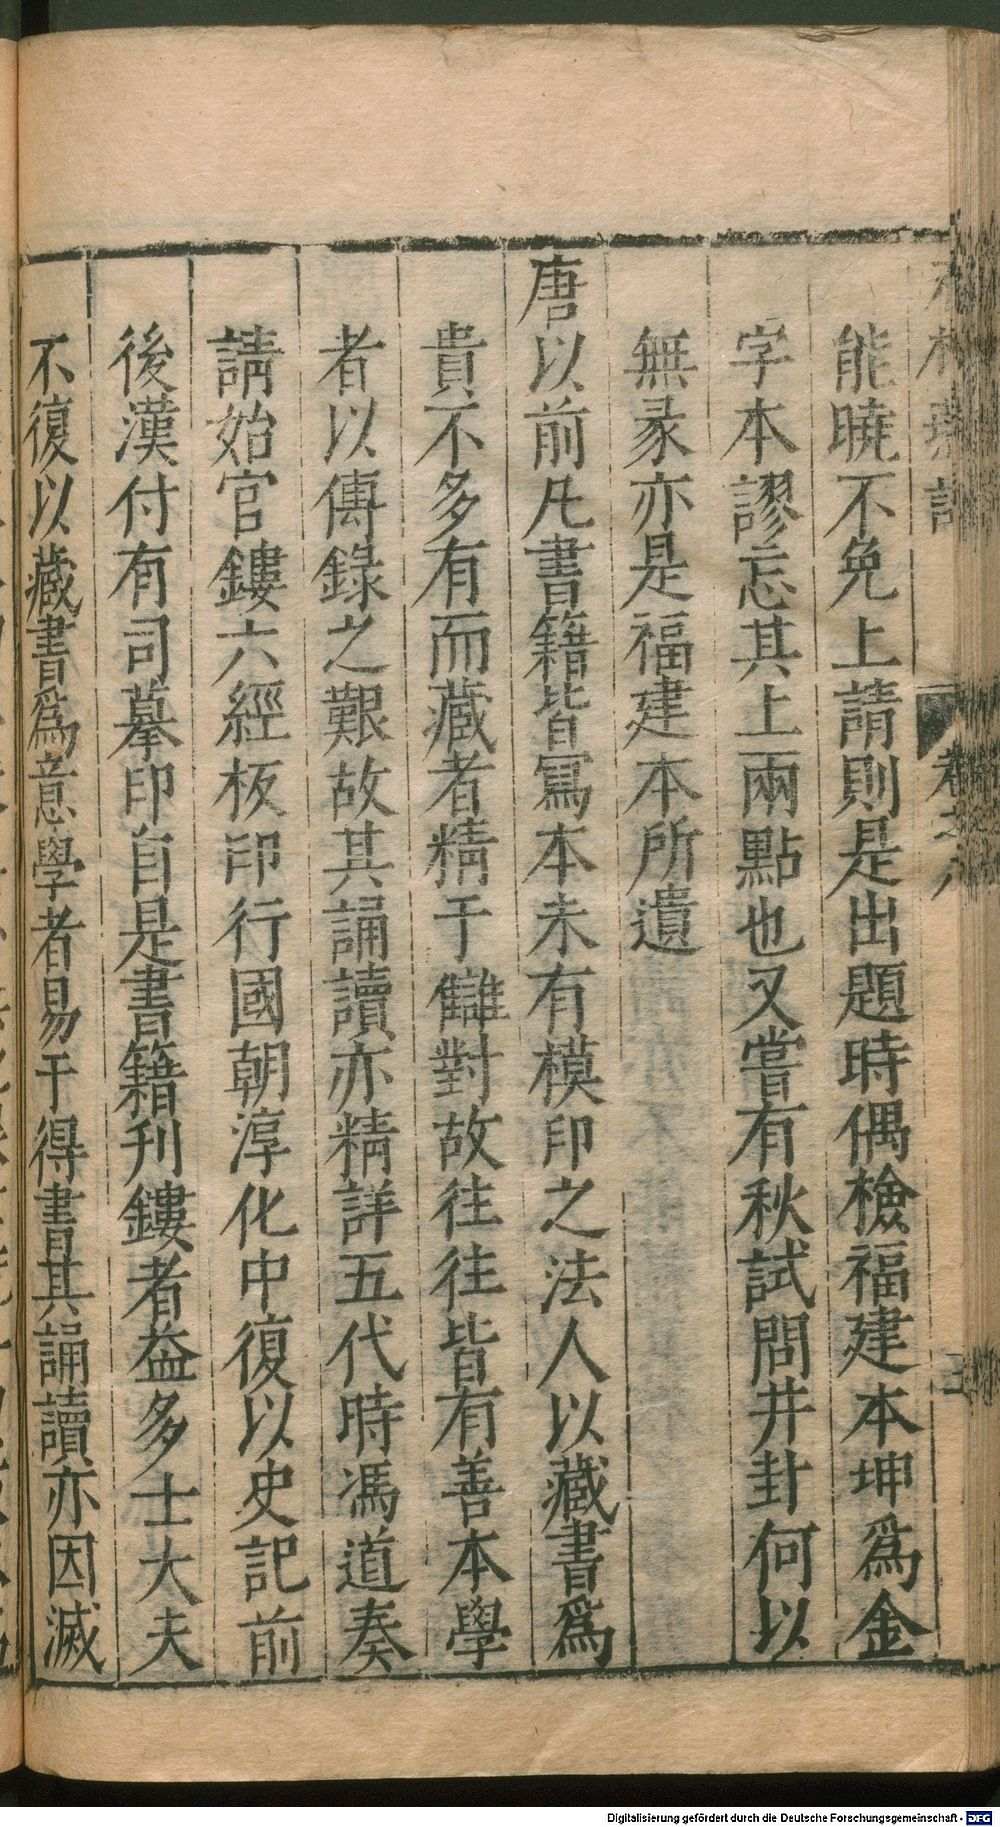 能曉不免上請則是出題時偶檢福建本坤爲金
字本謬忘其上兩點也又嘗有秋試問井卦何以
無彖亦是福建本所遺
唐以前凡書籍皆寫本未有模印之法人以藏書爲
貴不多有而藏者精于讎對故往往皆有善本學
者以傳錄之艱故其誦讀亦精詳五代時馮道奏
請始官鏤六經板印行國朝淳化中復以史記前
後漢付有司摹印自是書籍刊鏤者益多士大夫
不復以藏書爲意學者易于得書其誦讀亦因滅
Digitalisierung gefördert durch die Deutsche Forschungsgemeinschaft - DFG